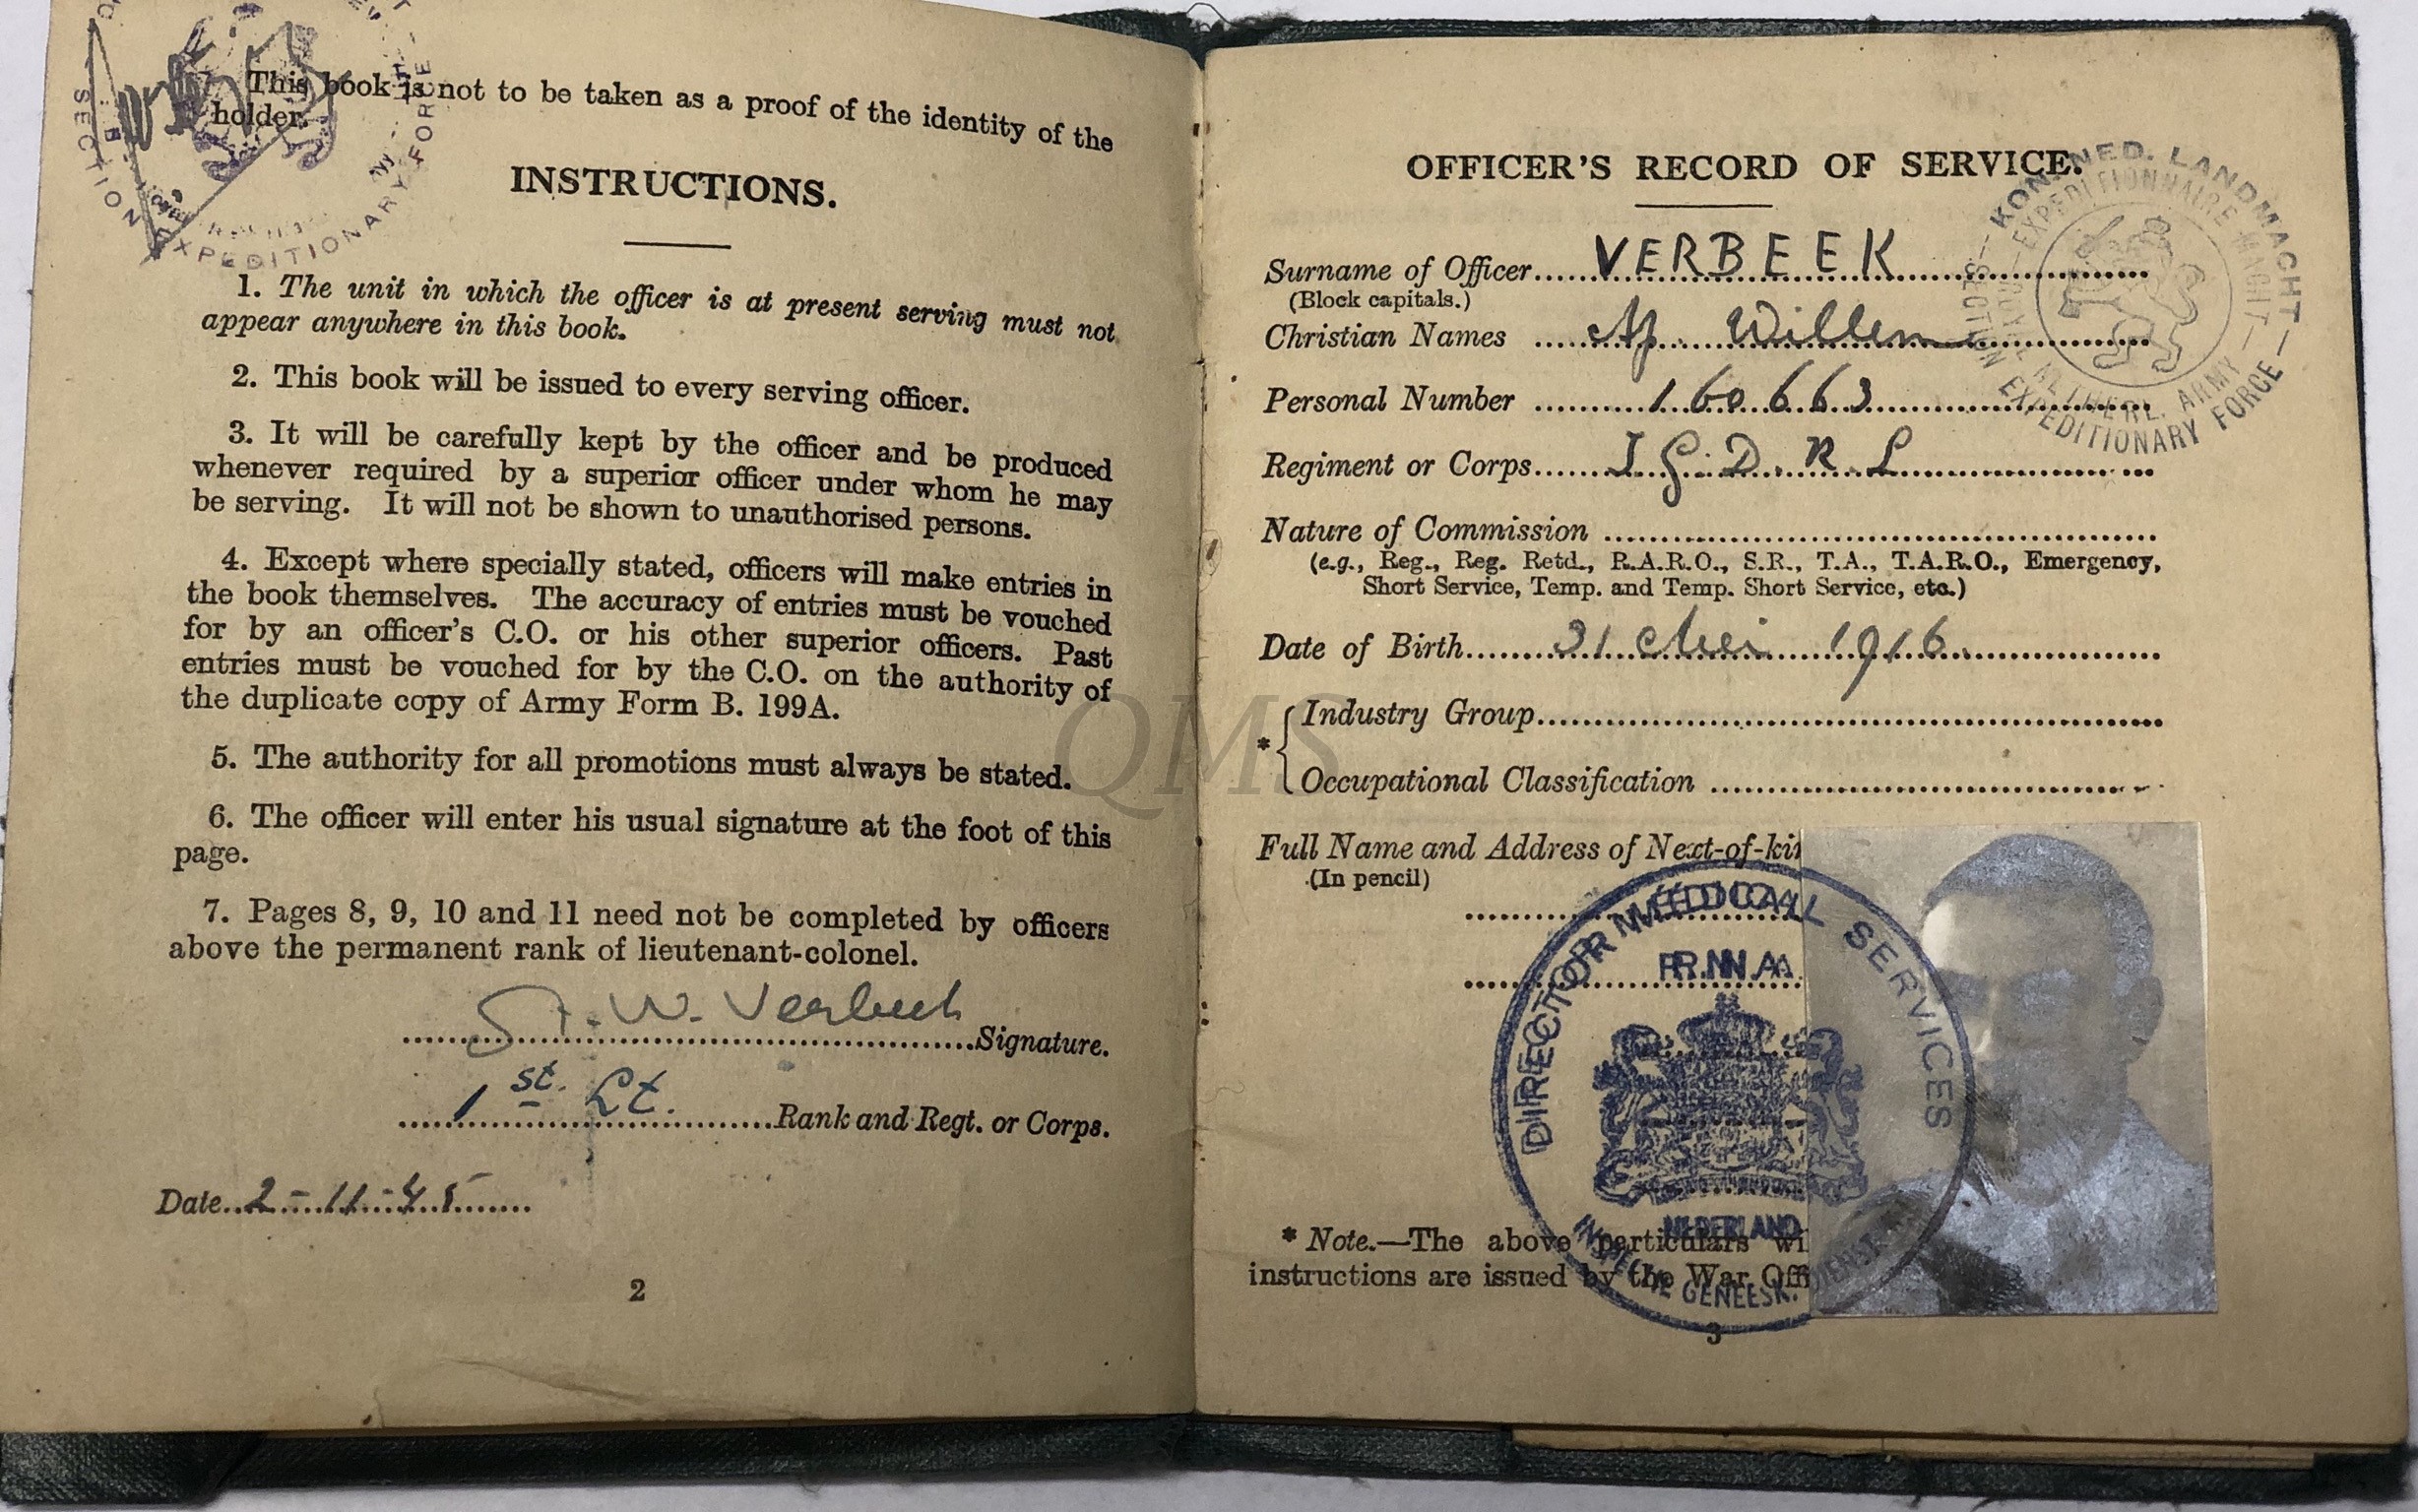 This book is not to be taken as a proof of the identity of the
holder.
SECTION EXPEDITIONARY FORCE
INSTRUCTIONS.
1. The unit in which the officer is at present serving must not
appear anywhere in this book.
2. This book will be issued to every serving officer.
3. It will be carefully kept by the officer and be produced
whenever required by a superior officer under whom he may
be serving. It will not be shown to unauthorised persons.
4. Except where specially stated, officers will make entries in
the book themselves. The accuracy of entries must be vouched
for by an officer's C.O. or his other superior officers. Past
entries must be vouched for by the C.O. on the authority of
the duplicate copy of Army Form B. 199A.
5. The authority for all promotions must always be stated.
6. The officer will enter his usual signature at the foot of this
page.
7. Pages 8, 9, 10 and 11 need not be completed by officers
above the permanent rank of lieutenant-colonel.
W. Verbeek Signature.
1st. Lt. Rank and Regt. or Corps.
Date 2-11-45
2
OFFICER'S RECORD OF SERVICE.
KON. NED. LANDMACHT
EXPEDITIONNAIRE MACHT
ROYAL NETHERL. ARMY
SECTION EXPEDITIONARY FORCE
Surname of Officer VERBEEK
(Block capitals.)
Christian Names Willem
Personal Number 160663
Regiment or Corps I G. D. K. L
Nature of Commission
(e.g., Reg., Reg. Retd., R.A.R.O., S.R., T.A., T.A.R.O., Emergency,
Short Service, Temp. and Temp. Short Service, etc.)
Date of Birth 31 Mei 1916.
* Industry Group
Occupational Classification
Full Name and Address of Next-of-kin
(In pencil)
DIRECTOR MEDICAL SERVICES
R.N.A.
NEDERLAND
INSPECTIE GENEESK. DIENST
* Note.—The above particulars wi
instructions are issued by the War Offi
3
QMS